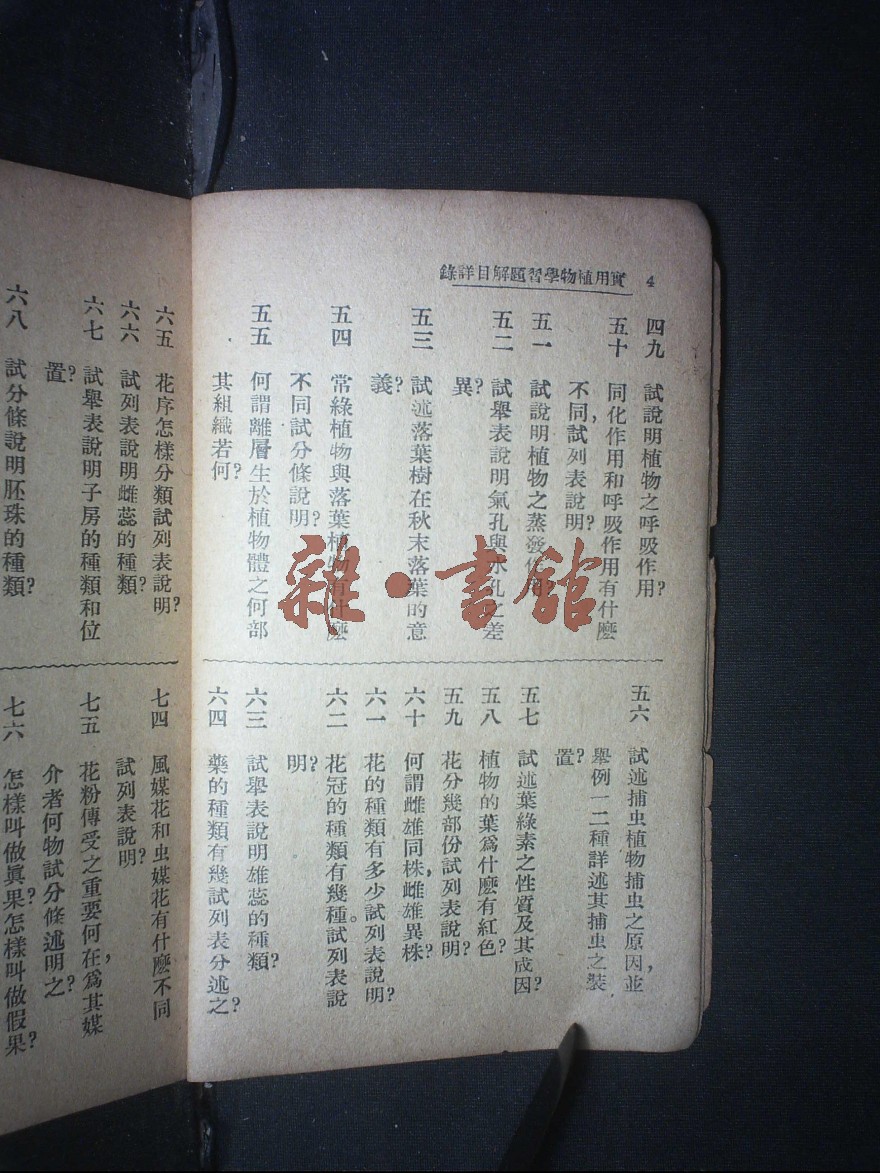 實用植物學習題解目詳錄 4
四九 試說明植物之呼吸作用?
五十 同化作用和呼吸作用有什麼
不同,試列表說明?
五一 試說明植物之蒸發作用?
五二 試舉表說明氣孔與水孔之差
異?
五三 試述落葉樹在秋末落葉的意
義?
五四 常綠植物與落葉植物有什麼
不同試分條說明?
五五 何謂離層生於植物體之何部
其組織若何?
五六 試述捕虫植物捕虫之原因,並
舉例一二種詳述其捕虫之裝
置?
五七 試述葉綠素之性質及其成因?
五八 植物的葉爲什麼有紅色?
五九 花分幾部份試列表說明?
六十 何謂雌雄同株,雌雄異株?
六一 花的種類有多少試列表說明?
六二 花冠的種類有幾種。試列表說
明?
六三 試舉表說明雄蕊的種類?
六四 藥的種類有幾試列表分述之?
六五 花序怎樣分類試列表說明?
六六 試列表說明雌蕊的種類?
六七 試舉表說明子房的種類和位
置?
六八 試分條說明胚珠的種類?
七四 風媒花和虫媒花有什麼不同
試列表說明?
七五 花粉傳受之重要何在,爲其媒
介者何物試分條述明之?
七六 怎樣叫做眞果?怎樣叫做假果?
雜·書館